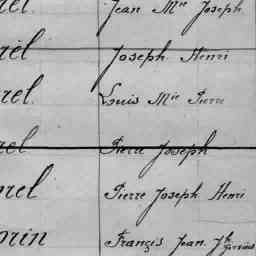 rel Jean Mie Joseph
rel Joseph Henri
rel. Louis Mie Pierre
rel Pierre Joseph
rel Pierre Joseph Henri
rin François Jean Jh